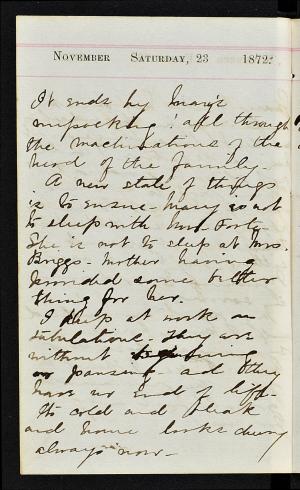 November Saturday, 23 1872.
It ends by Mary's
unpacking! all through
the machinations of the
head of the family.
A new state of things
is to ensue - Mary is not
to sleep with
She is not to sleep at Mrs.
Briggs - Mother having
provided some better
thing for her.
I keep at work on
tabulations. They are
without
pausing and they
have no end of life.
Its cold and bleak
and home looks cheery
always now -